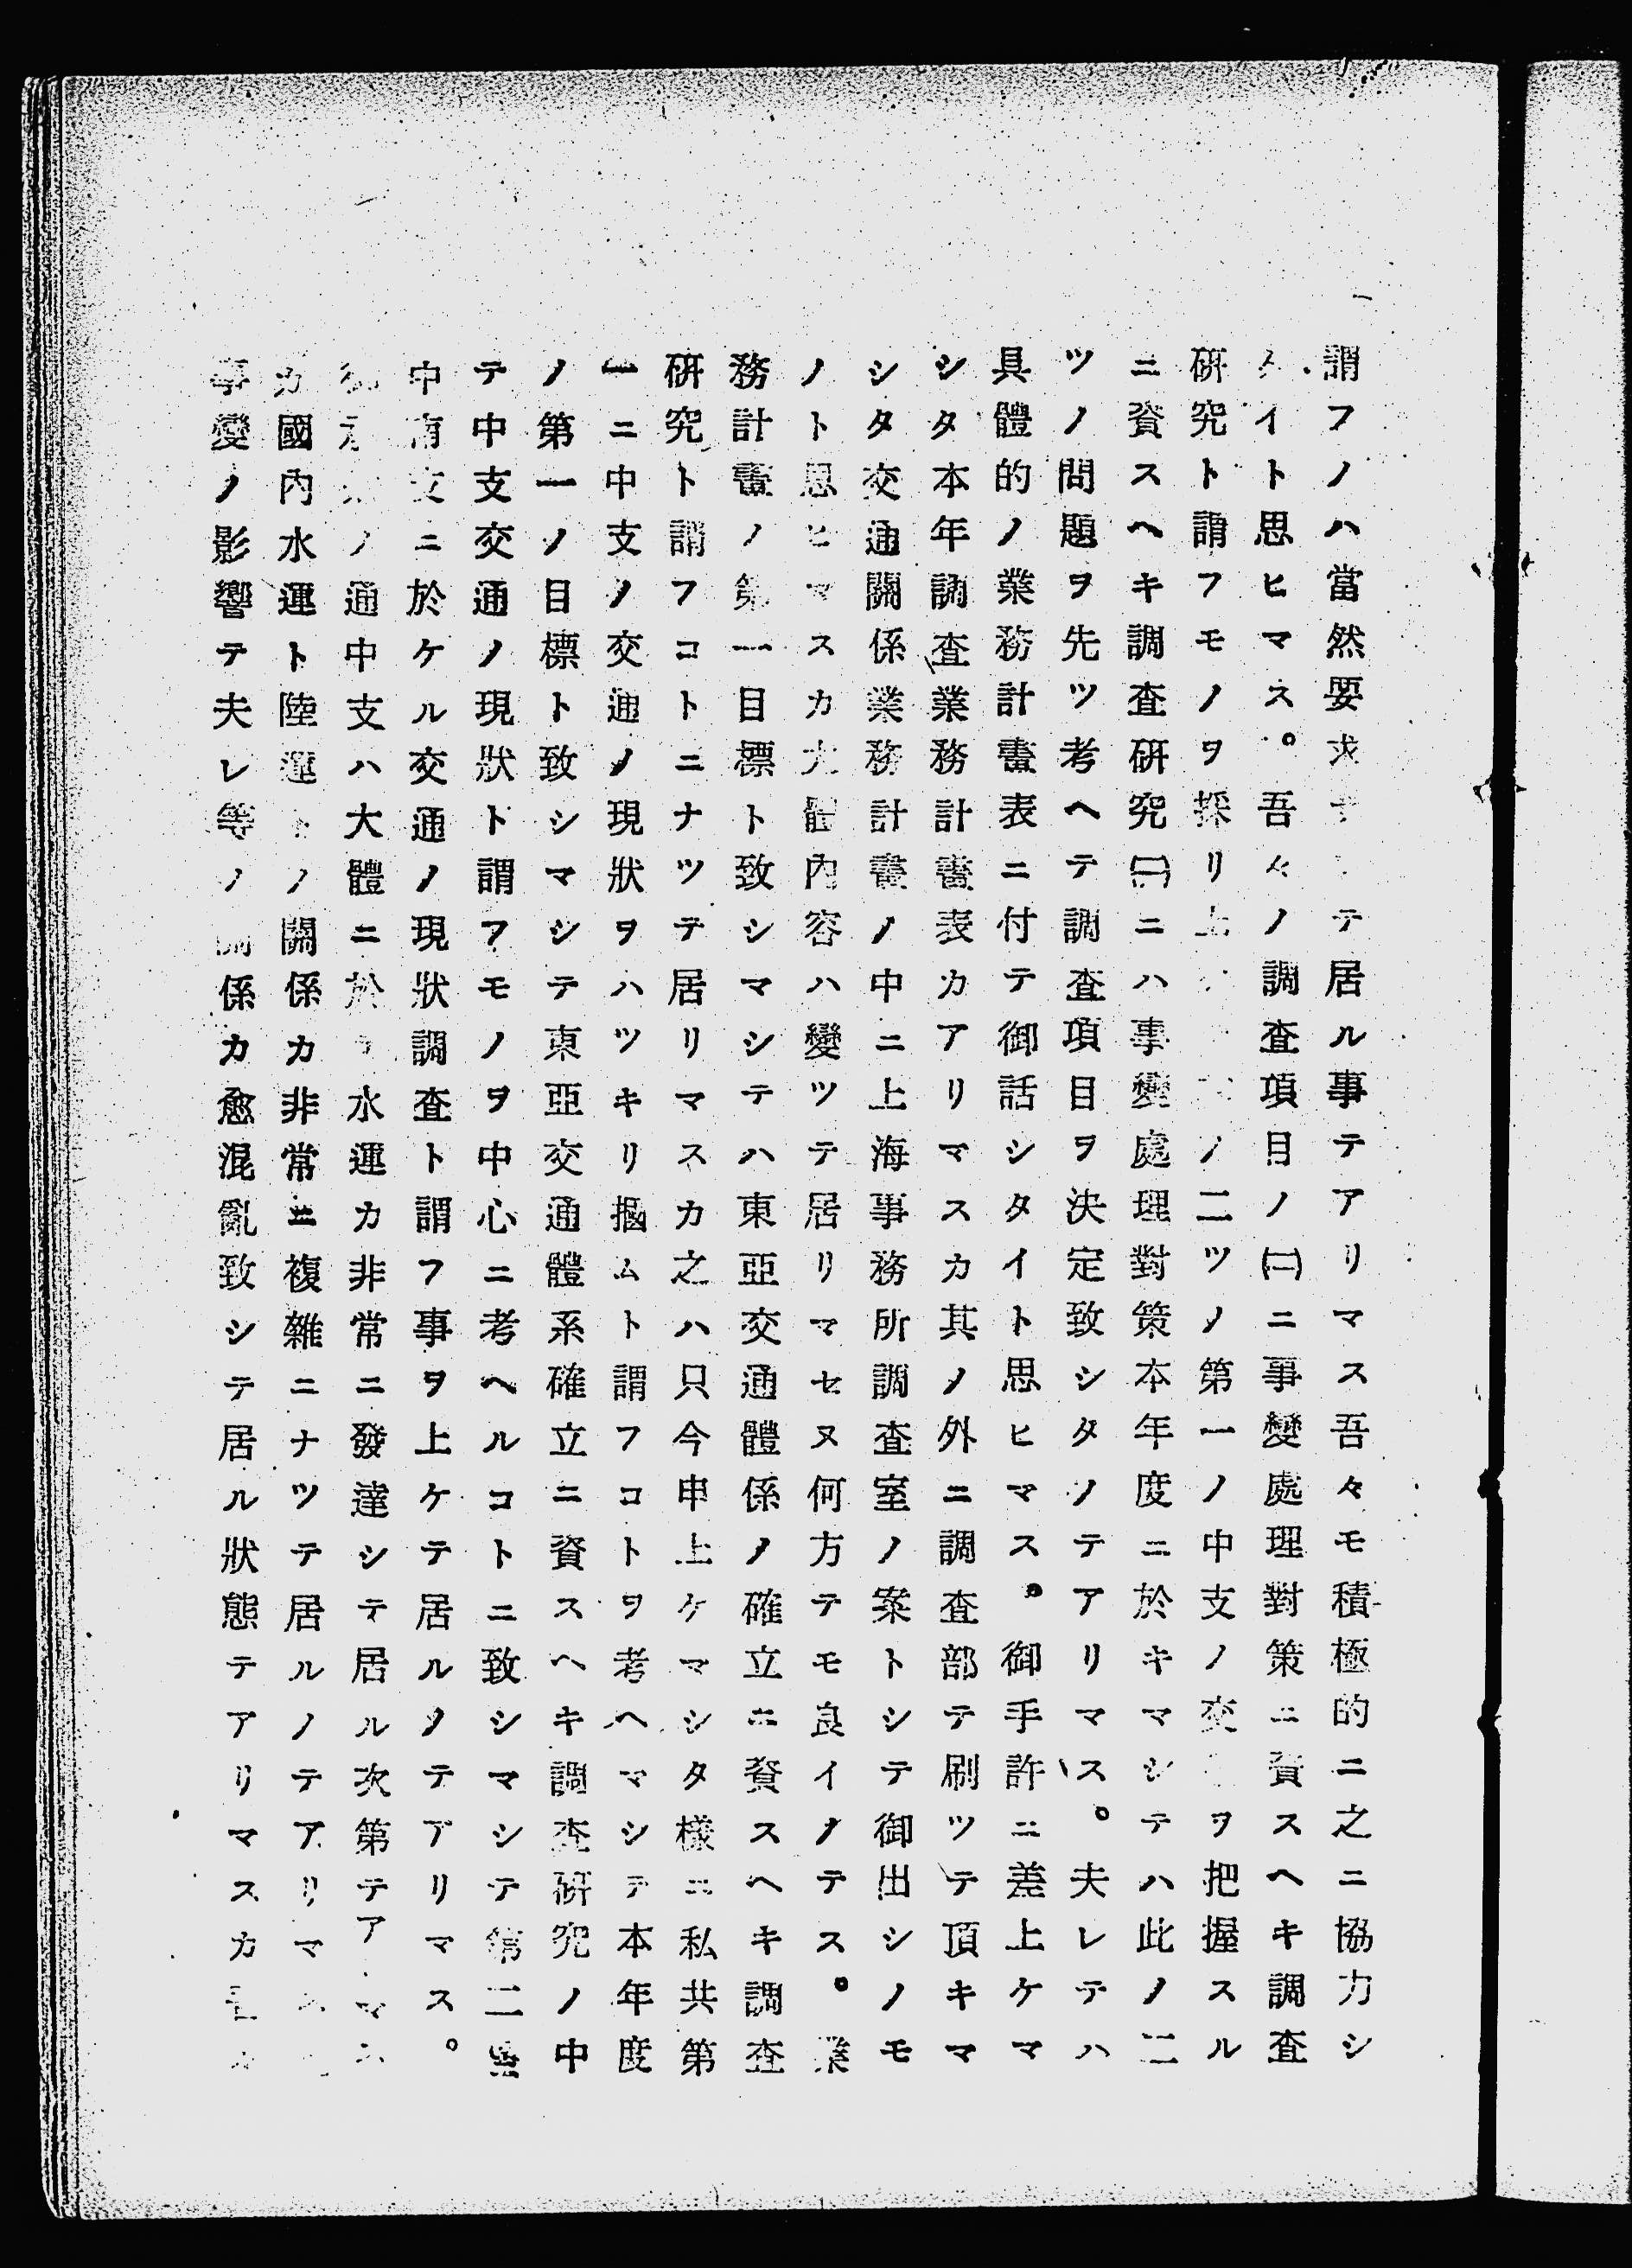 謂フノハ當然要求テ居ル事テアリマス吾々モ積極的ニ之ニ協力シ
イト思ヒマス。吾々ノ調査項目ノ(二)ニ事變處理對策ニ資スヘキ調査
研究ト謂フモノヲ採リ上ノ二ツノ第一ノ中支ノ交ヲ把握スル
ニ資スヘキ調査研究(二)ニハ事變處理對策本年度ニ於キマシテハ此ノ二
ツノ問題ヲ先ツ考ヘテ調査項目ヲ決定致シタノテアリマス。夫レテハ
具體的ノ業務計畫表ニ付テ御話シタイト思ヒマス。御手許ニ差上ケマ
シタ本年調査業務計畫表カアリマスカ其ノ外ニ調査部テ刷ツテ頂キマ
シタ交通關係業務計畫ノ中ニ上海事務所調査室ノ案トシテ御出シノモ
ノト思ヒマスカ大體內容ハ變ツテ居リマセヌ何方テモ良イノテス。業
務計畫ノ第一目標ト致シマシテハ東亞交通體係ノ確立ニ資スヘキ調査
研究ト謂フコトニナツテ居リマスカ之ハ只今申上ケマシタ樣ニ私共第
一ニ中支ノ交通ノ現狀ヲハツキリ摑ムト謂フコトヲ考ヘマシテ本年度
ノ第一ノ目標ト致シマシテ東亞交通體系確立ニ資スヘキ調査研究ノ中
テ中支交通ノ現狀ト謂フモノヲ中心ニ考ヘルコトニ致シマシテ第二
中南支ニ於ケル交通ノ現狀調査ト謂フ事ヲ上ケテ居ルノテアリマス。
ノ通中支ハ大體ニ於水運カ非常ニ發達シテ居ル次第テアマス
カ國內水運ト陸運トノ關係カ非常ニ複雜ニナツテ居ルノテアリマス
事變ノ影響テ夫レ等ノ關係カ愈混亂致シテ居ル狀態テアリマスカ